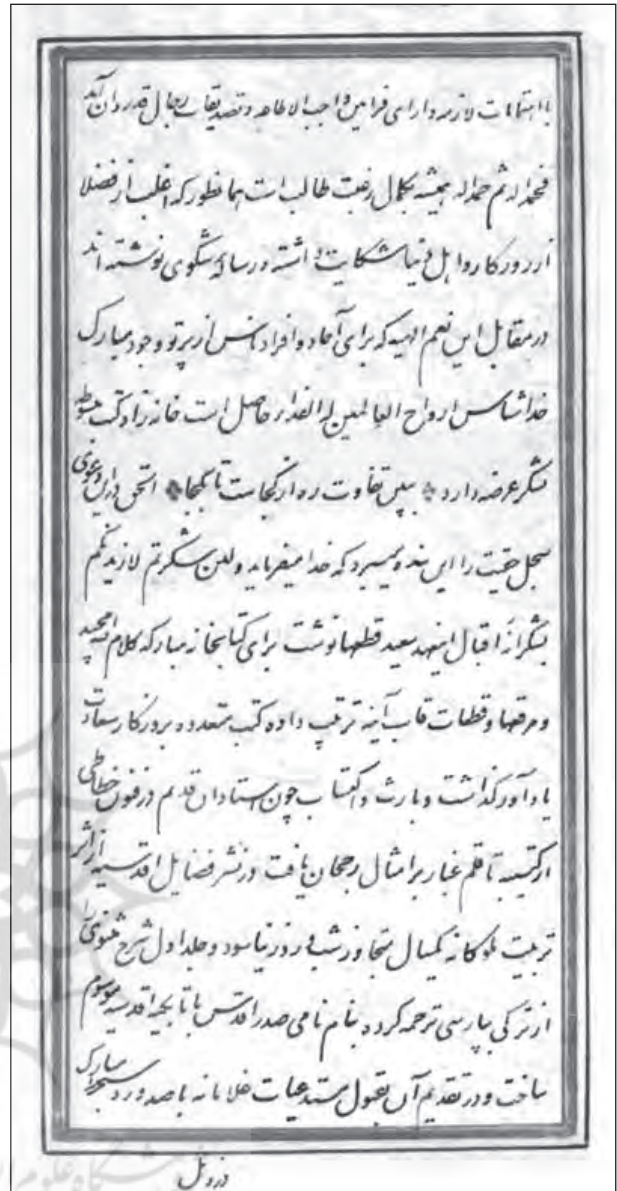 با اهتمامات لازمه دارای فرامین واجب الاطاعه و تصدیقات رجال قدردان آمد
فحمدا له ثم حمدا له همیشه بکمال رغبت طالب است همانطور که اغلب از فضلا
از روزگار و اهل دنیا شکایت داشته و رسائل شکوی نوشته اند
در مقابل این نعم الهیه که برای آحاد و افراد ناس از پرتو وجود مبارک
خداشناس ارواح العالمین له الفدا حاصل است خانه زاد کتب مبسوطه
شکر عرضه دارد ببین تفاوت ره از کجاست تا بکجا الحق در این دعوی
سجل حقیت را این بنده میسپرد که خدا میفرماید ولئن شکرتم لازیدنکم
بشکرانه اقبال اینعهد سعید قطعها نوشت برای کتابخانه مبارکه کلام الله مجید
و مرقعها و قطعات قاب آینه ترتیب داده کتب متعدده بروزگار سعادت
یادآور گذاشت و بارث و اکتساب چون استادان قدیم در فنون خطاطی
از کتیبه تا قلم غبار بر امثال رجحان یافت در نشر فضایل اقدسیه از اثر
تربیت ملوکانه یکسال متجاوز شب و روز نیاسود و جلد اول شرح مثنوی را
از ترکی بپارسی ترجمه کرده بنام نامی صدر اقدس با تابحیه اقدسیه موسوم
ساخت و در تقدیم آن بقبول مستدعیات غلامانه با صدور دستخط مبارک
در ذیل